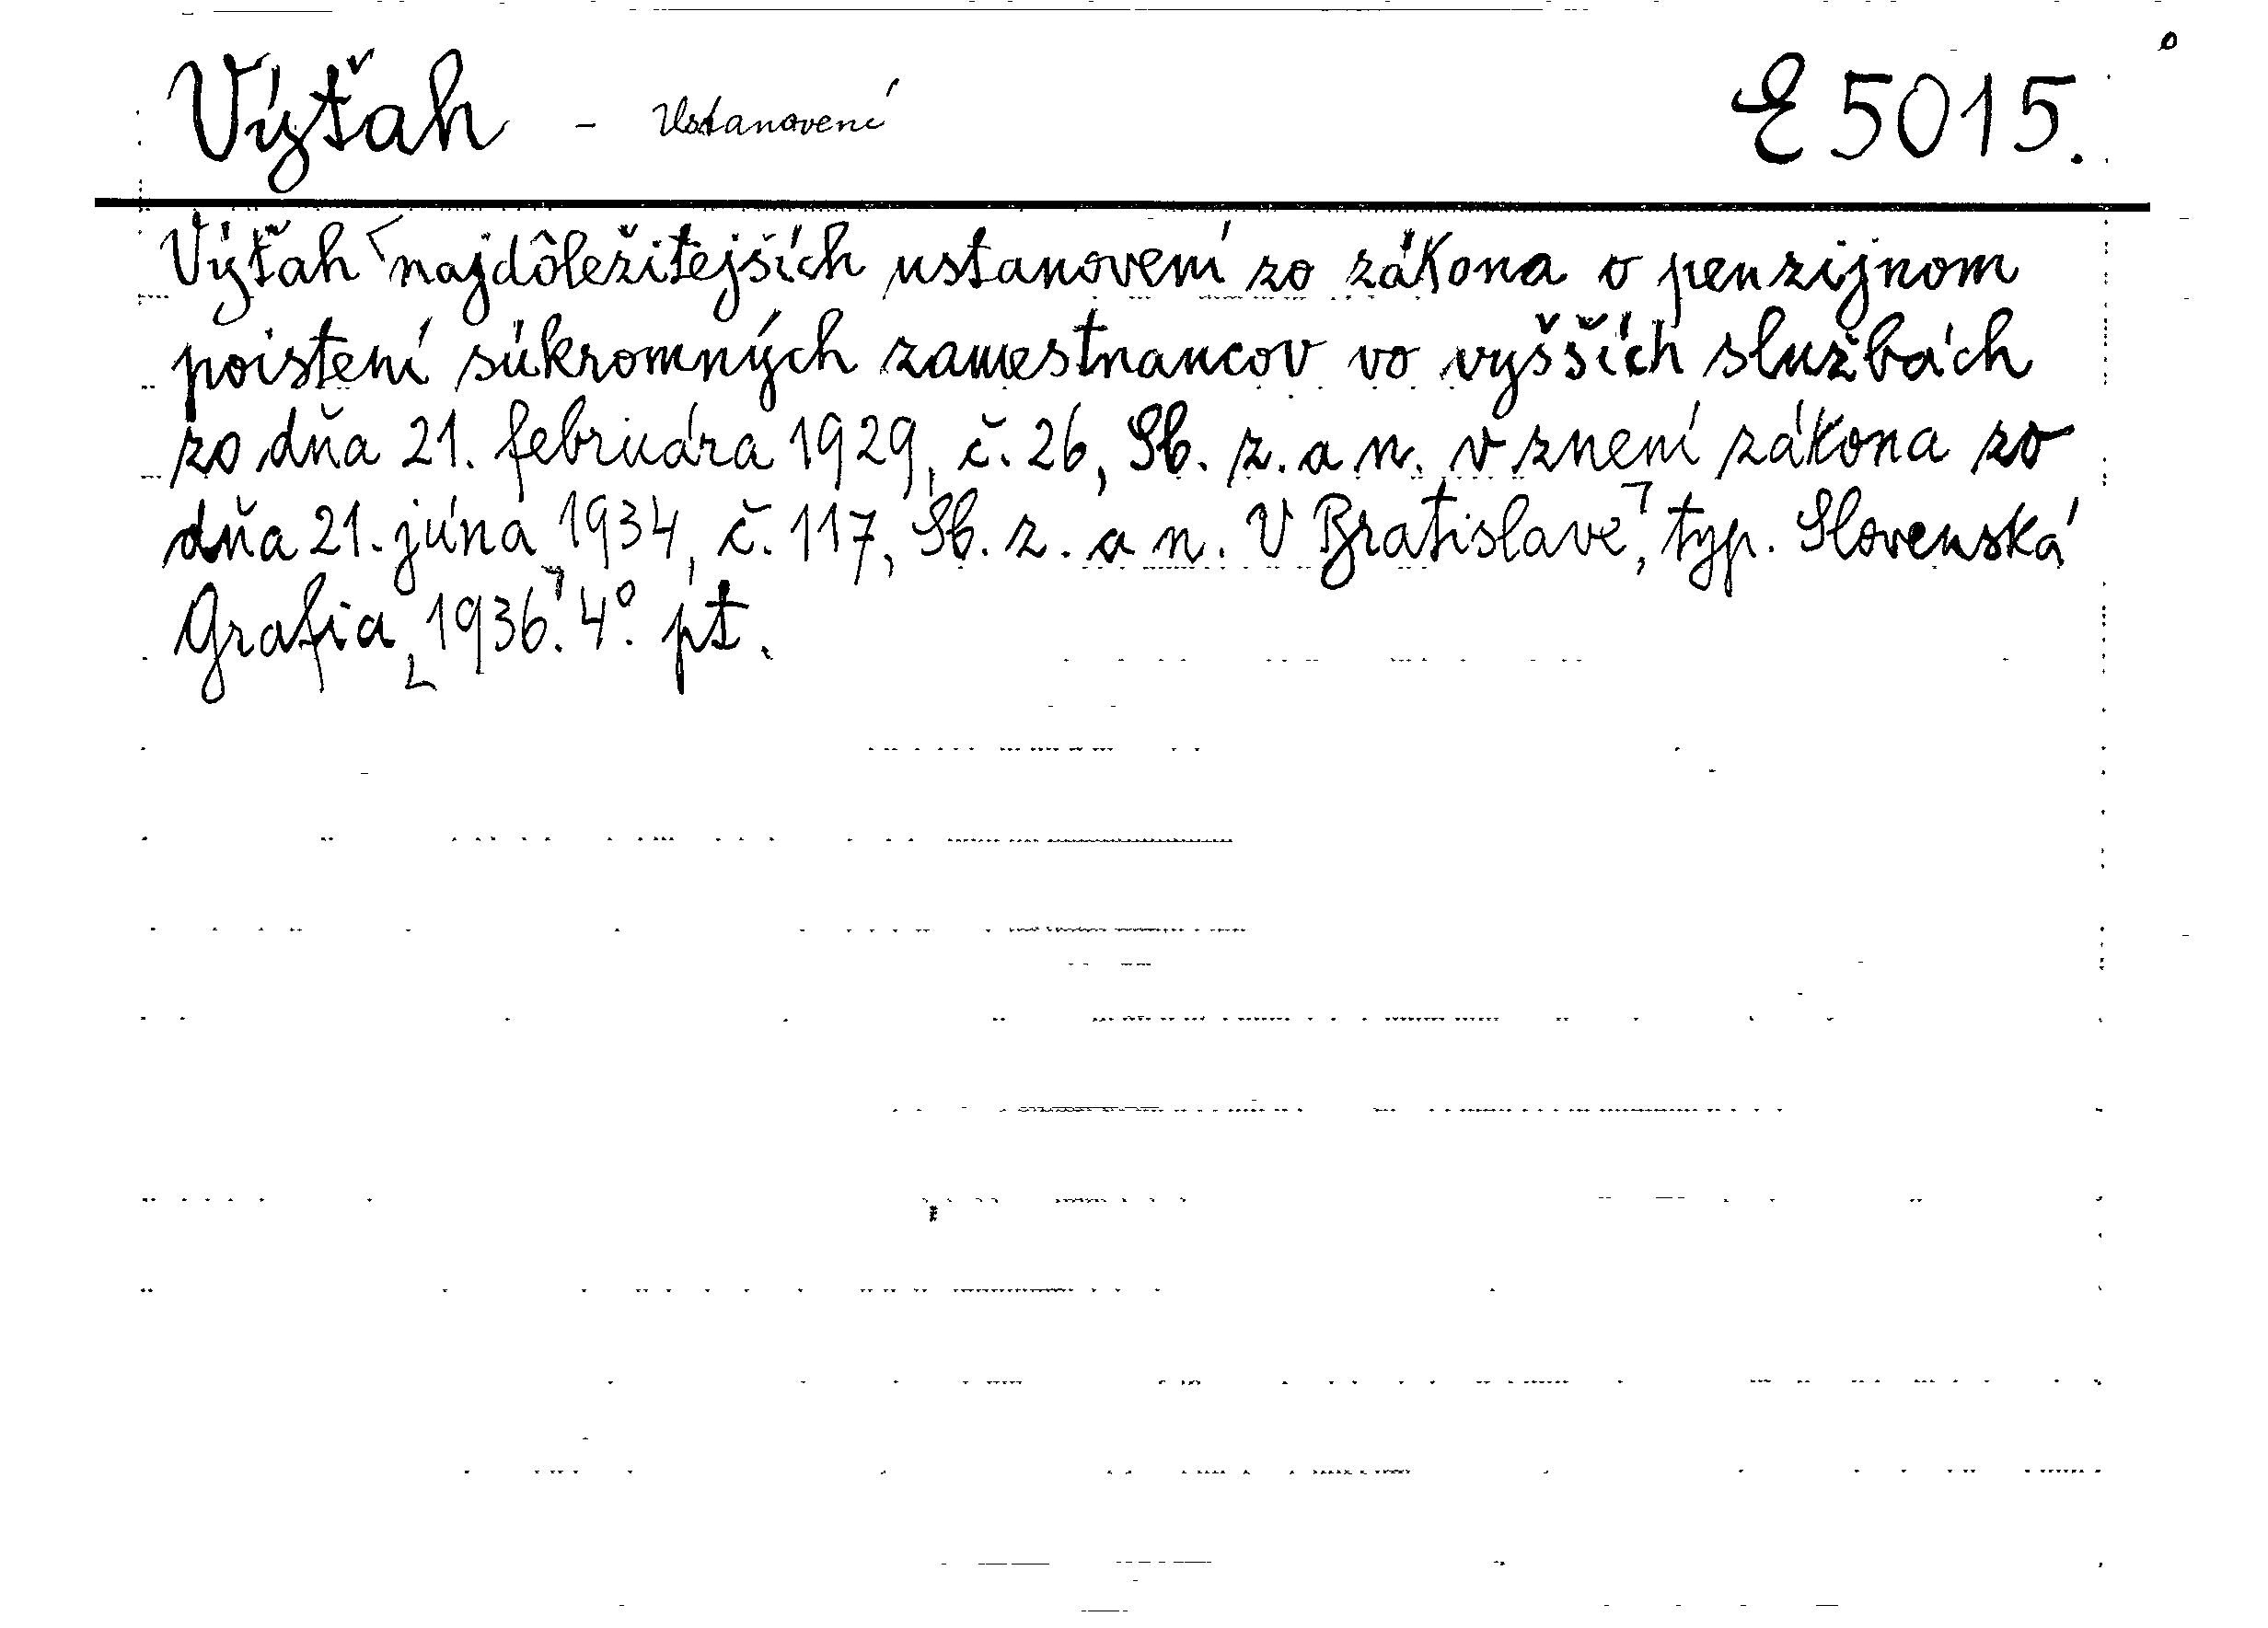 Výťah - Ustanovení E 5015.
Výťah najdôležitejších ustanovení zo zákona o penzijnom
poistení súkromných zamestnancov vo vyšších službách
zo dňa 21. februára 1929, č. 26, Sb. z. a n. v znení zákona zo
dňa 21. júna 1934, č. 117, Sb. z. a n. V Bratislave, typ. Slovenská
Grafia, 1936. 4°. pt.